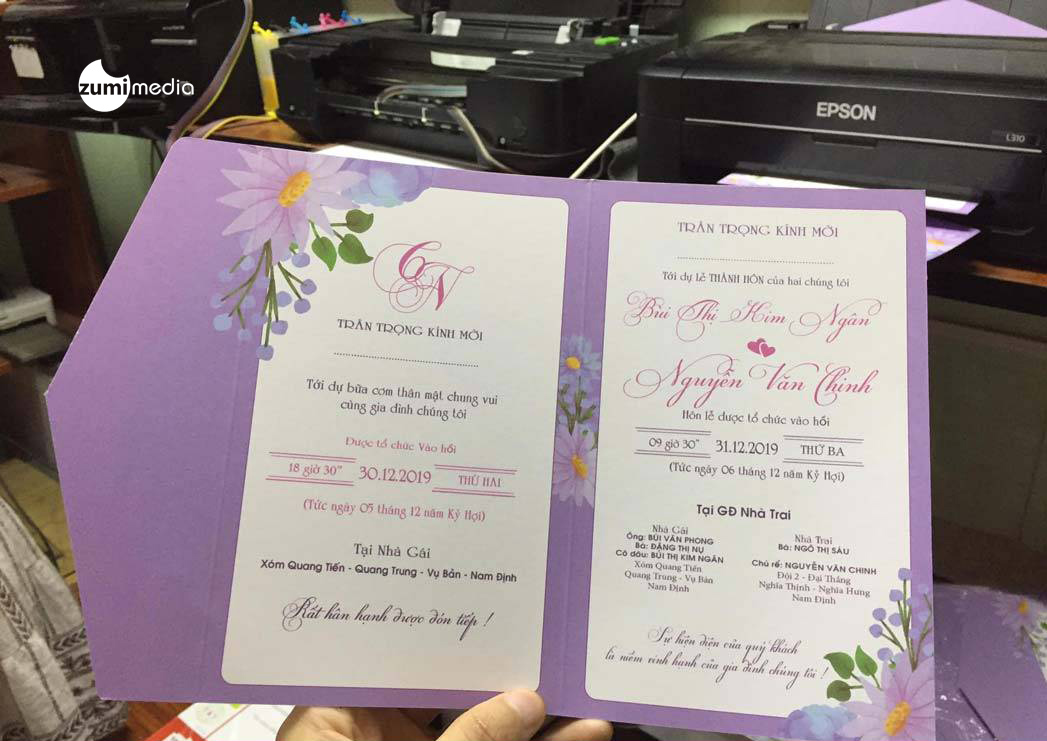 zumimedia
EPSON
L310
CN
TRÂN TRỌNG KÍNH MỜI
Tới dự bữa cơm thân mật chung vui
cùng gia đình chúng tôi
Được tổ chức Vào hồi
18 giờ 30" 30.12.2019 THỨ HAI
(Tức ngày 05 tháng 12 năm Kỷ Hợi)
Tại Nhà Gái
Xóm Quang Tiến - Quang Trung - Vụ Bản - Nam Định
Rất hân hạnh được đón tiếp !
TRÂN TRỌNG KÍNH MỜI
Tới dự lễ THÀNH HÔN của hai chúng tôi
Bùi Thị Kim Ngân
Nguyễn Văn Chinh
Hôn lễ được tổ chức vào hồi
09 giờ 30" 31.12.2019 THỨ BA
(Tức ngày 06 tháng 12 năm Kỷ Hợi)
Tại GĐ Nhà Trai
Nhà Gái
Ông: BÙI VĂN PHONG
Bà: ĐẶNG THỊ NỤ
Cô dâu: BÙI THỊ KIM NGÂN
Xóm Quang Tiến
Quang Trung - Vụ Bản
Nam Định
Nhà Trai
Bà: NGÔ THỊ SÁU
Chú rể: NGUYỄN VĂN CHINH
Đội 2 - Đại Thắng
Nghĩa Thịnh - Nghĩa Hưng
Nam Định
Sự hiện diện của quý khách
là niềm vinh hạnh của gia đình chúng tôi !